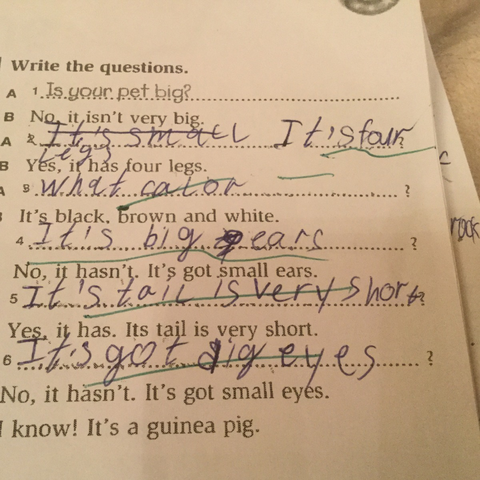 Write the questions.
A 1 Is your pet big?
B No, it isn't very big.
A 2 It's small It's four ?
legs
B Yes, it has four legs.
A 3 What color ?
It's black, brown and white.
4 It's big ears ?
No, it hasn't. It's got small ears.
5 It's tail is very short ?
Yes, it has. Its tail is very short.
6 It's got big eyes ?
No, it hasn't. It's got small eyes.
I know! It's a guinea pig.